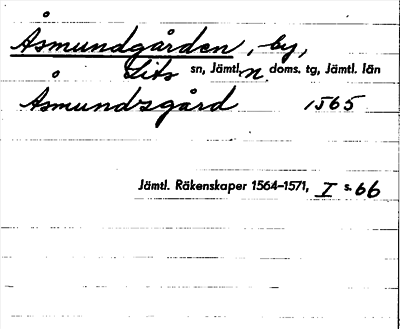 Åsmundgården, by,
Lits sn, Jämtl. n. doms. tg, Jämtl. län
Åsmundsgård 1565
Jämtl. Räkenskaper 1564–1571, I s. 66